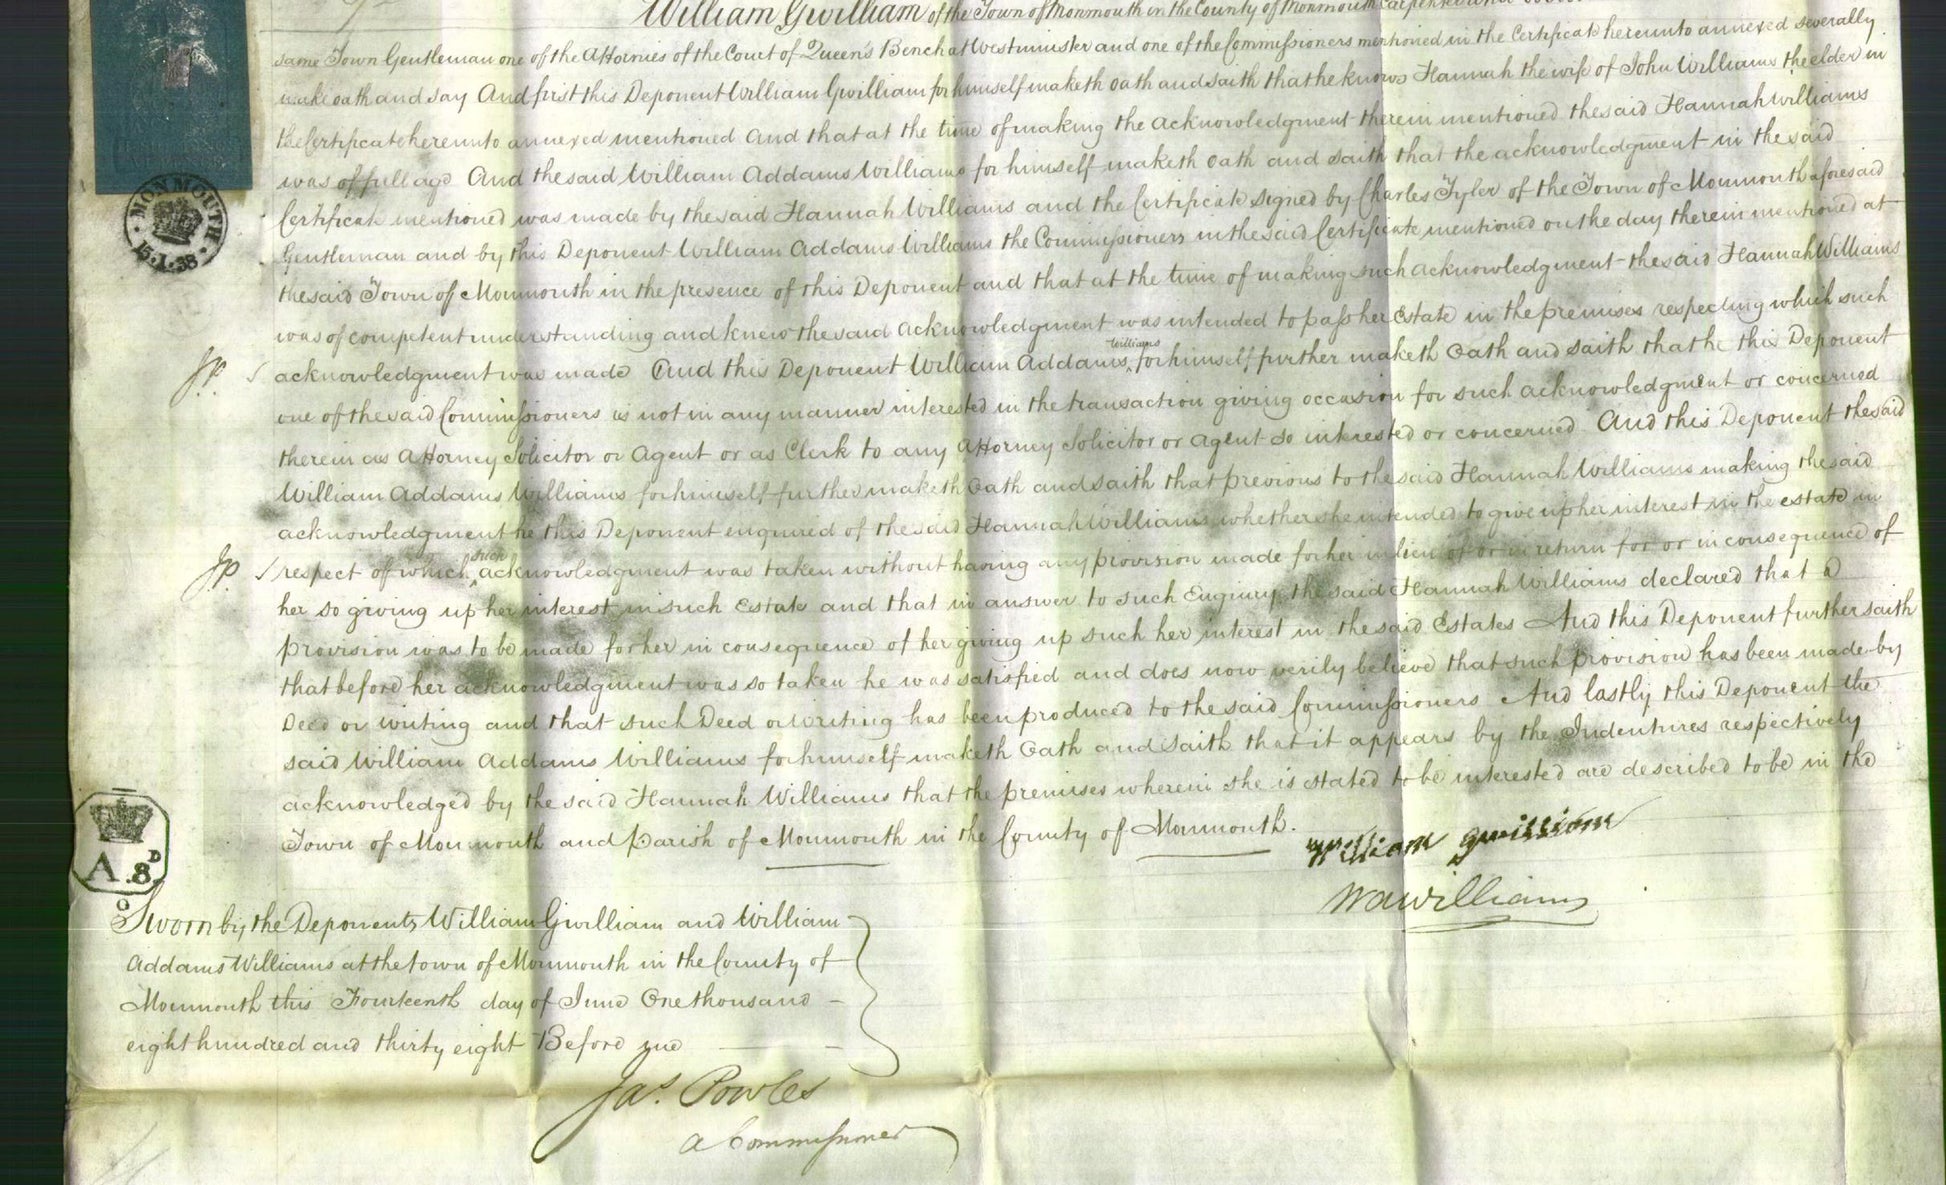 William Gwilliam of the Town of Monmouth in the County of Monmouth Carpenter
same Town Gentleman one of the Attornies of the Court of Queen's Bench at Westminster and one of the Commissioners mentioned in the Certificate hereunto annexed severally
make oath and say And first this Deponent William Gwilliam for himself maketh oath and saith that he knows Hannah the wife of John Williams the elder in
the Certificate hereunto annexed mentioned And that at the time of making the acknowledgment therein mentioned the said Hannah Williams
was of full age And the said William Addams Williams for himself maketh Oath and saith that the acknowledgment in the said
Certificate mentioned was made by the said Hannah Williams and the Certificate signed by Charles Tyler of the Town of Monmouth aforesaid
Gentleman and by this Deponent William Addams Williams the Commissioners in the said Certificate mentioned on the day therein mentioned at
the said Town of Monmouth in the presence of this Deponent and that at the time of making such acknowledgment the said Hannah Williams
was of competent understanding and knew the said acknowledgment was intended to pass her Estate in the premises respecting which such
J.P. acknowledgment was made And this Deponent William Addams Williams for himself further maketh Oath and saith that he this Deponent
one of the said Commissioners is not in any manner interested in the transaction giving occasion for such acknowledgment or concerned
therein as Attorney Solicitor or Agent or as Clerk to any Attorney Solicitor or Agent so interested or concerned And this Deponent the said
William Addams Williams for himself further maketh Oath and saith that previous to the said Hannah Williams making the said
acknowledgment he this Deponent enquired of the said Hannah Williams whether she intended to give up her interest in the estate in
J.P. respect of which such acknowledgment was taken without having any provision made for her in lieu of or in return for or in consequence of
her so giving up her interest in such Estate and that in answer to such Enquiry the said Hannah Williams declared that a
provision was to be made for her in consequence of her giving up such her interest in the said Estates And this Deponent further saith
that before her acknowledgment was so taken he was satisfied and does now verily believe that such provision has been made by
Deed or writing and that such Deed or Writing has been produced to the said Commissioners And lastly this Deponent the
said William Addams Williams for himself maketh Oath and saith that it appears by the Indentures respectively
acknowledged by the said Hannah Williams that the premises wherein she is stated to be interested are described to be in the
Town of Monmouth and Parish of Monmouth in the County of Monmouth.
William Gwilliam
Wa Williams
Sworn by the Deponents William Gwilliam and William
Addams Williams at the town of Monmouth in the County of
Monmouth this Fourteenth day of June One thousand
eight hundred and thirty eight Before me
Jas. Powles
a Commissioner
MONMOUTH
A.8D